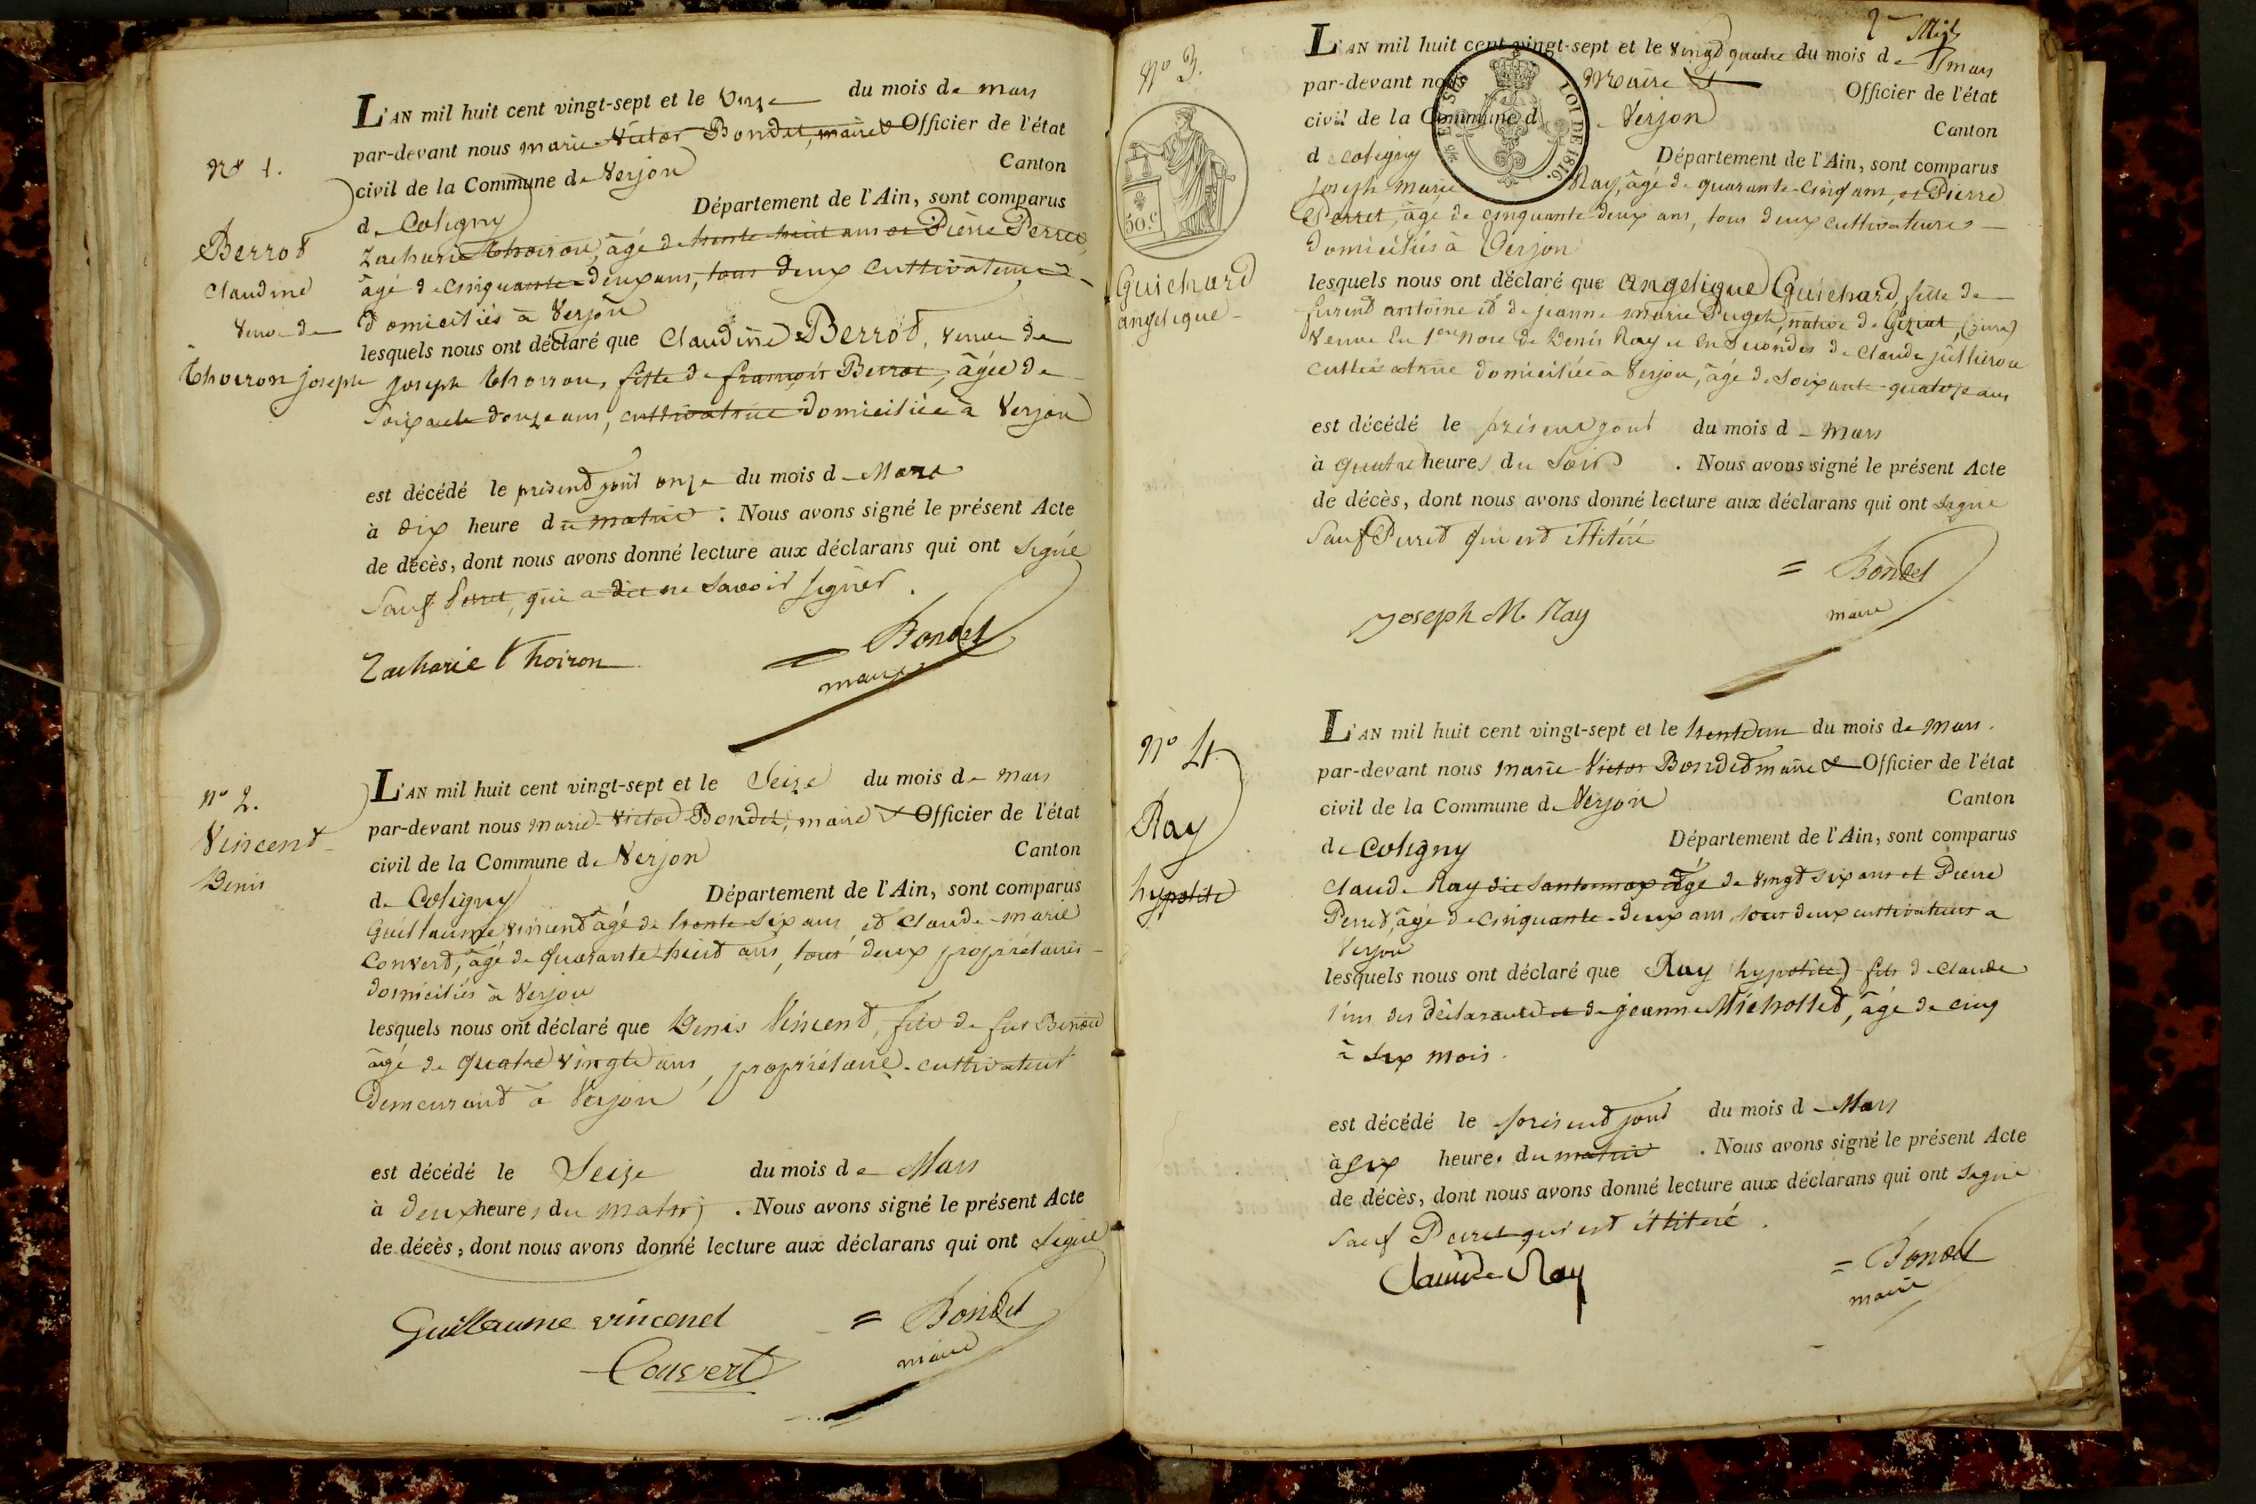 Nº 1.
Berrod
Claudine
veuve de
Thoiron joseph
L'AN mil huit cent vingt-sept et le onze du mois de mars
par-devant nous marie Victor Bondet, maire & Officier de l'état
civil de la Commune de Verjon Canton
de Coligny Département de l'Ain, sont comparus
Zacharie Thoiron, âgé de trente huit ans et Pierre Perret,
âgé de cinquante-deux ans, tous deux cultivateurs
domiciliés à Verjon
lesquels nous ont déclaré que Claudine Berrod, veuve de
joseph Thoiron, fille de françois Berrod, âgée de
soixante douze ans, cultivatrice domiciliée à Verjon
est décédé le présent jour onze du mois de Mars
à dix heure du matin. Nous avons signé le présent Acte
de décès, dont nous avons donné lecture aux déclarans qui ont signé
sauf Perret, qui a dit ne savoir signer.
Zacharie thoiron
= Bondet
maire
nº 2.
Vincend
Denis
L'AN mil huit cent vingt-sept et le Seize du mois de mars
par-devant nous marie Victor Bondet, maire & Officier de l'état
civil de la Commune de Verjon Canton
de Coligny Département de l'Ain, sont comparus
Guillaume vincend âgé de trente six ans et Claude-marie
Convert, âgé de quarante huit ans, tous deux propriétaires
domiciliés à Verjon
lesquels nous ont déclaré que Denis Vincend, fils de feu Benoit
âgé de quatre vingt ans, propriétaire-cultivateur
demeurant à Verjon
est décédé le Seize du mois de Mars
à deux heures du matin. Nous avons signé le présent Acte
de décès, dont nous avons donné lecture aux déclarans qui ont signé
Guillaume vincend
Convert
= Bondet
maire
Nº 3.
50.c
Guichard
angelique
LOI DE 1816.
L'AN mil huit cent vingt-sept et le vingt quatre du mois de mars
par-devant nous Maire & Officier de l'état
civil de la Commune d Verjon Canton
d coligny Département de l'Ain, sont comparus
joseph marie Ray, âgé de quarante-cinq ans, et Pierre
Perret, âgé de cinquante-deux ans, tous deux cultivateurs
domiciliés à Verjon
lesquels nous ont déclaré que angelique Guichard, fille de
furent antoine et de jeanne marie Puget, native de (jura)
Veuve en 1ere noce de Denis Ray et en secondes de Claude
cultivatrice domiciliée à Verjon, âgé de soixante-quatorze ans
est décédé le présent jour du mois de Mars
à quatre heures du soir. Nous avons signé le présent Acte
de décès, dont nous avons donné lecture aux déclarans qui ont signé
sauf Perret qui est illitéré
= Bondet
maire
joseph M. Ray
Nº 4.
Ray
hypolite
L'AN mil huit cent vingt-sept et le trente un du mois de mars.
par-devant nous marie-Victor Bondet maire & Officier de l'état
civil de la Commune de Verjon Canton
de Coligny Département de l'Ain, sont comparus
Claude Ray dit âgé de vingt six ans et Pierre
Perret, âgé de cinquante-deux ans, tous deux cultivateurs à
Verjon
lesquels nous ont déclaré que Ray (hypolite) fils de Claude
l'un des déclarants et de jeanne Michollet, âgé de cinq
à six mois.
est décédé le présent jour du mois de Mars
à six heures du matin. Nous avons signé le présent Acte
de décès, dont nous avons donné lecture aux déclarans qui ont signé
sauf Perret qui est illitéré.
Claude Ray
= Bondet
maire